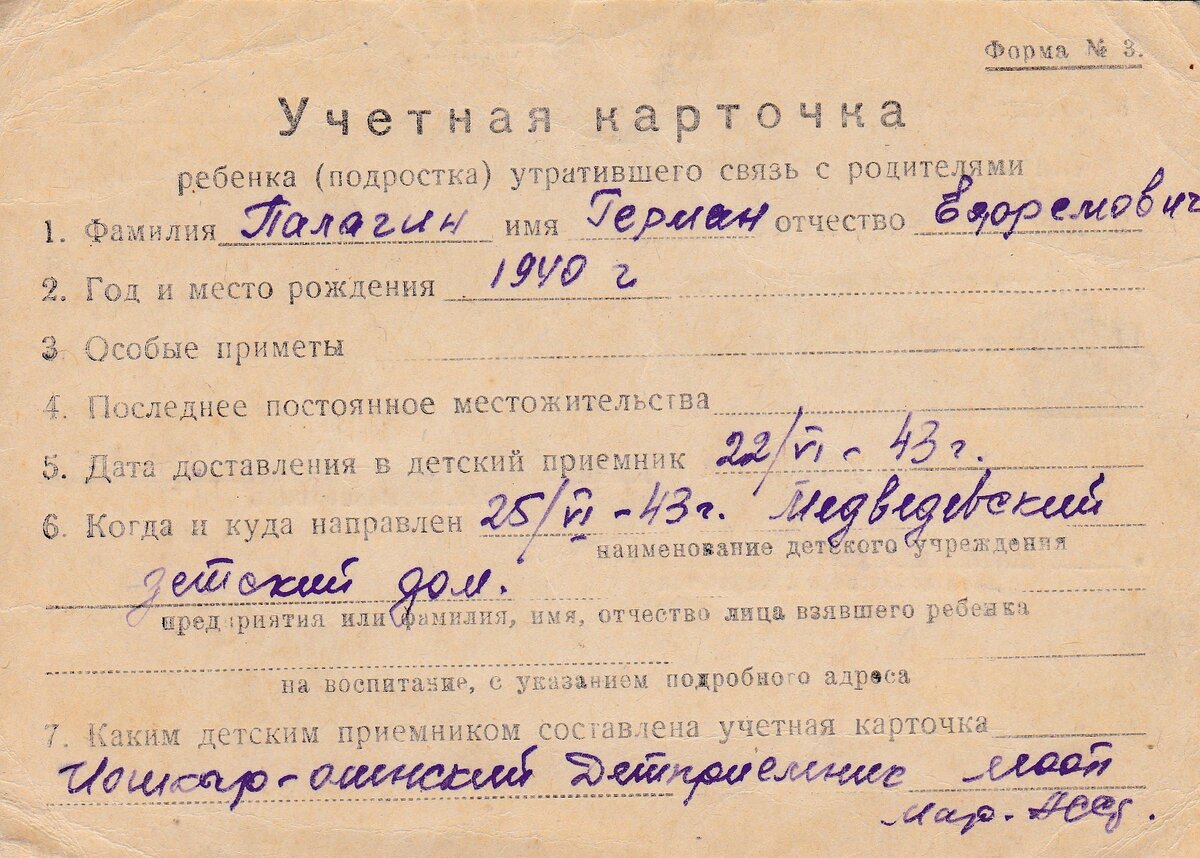 Форма № 3.
Учетная карточка
ребенка (подростка) утратившего связь с родителями
1. Фамилия Палагин имя Герман отчество Ефремович
2. Год и место рождения 1940 г
3. Особые приметы
4. Последнее постоянное местожительства
5. Дата доставления в детский приемник 22/VI - 43 г.
6. Когда и куда направлен 25/VI - 43 г. Медведевский
наименование детского учреждения
детский дом.
предприятия или фамилия, имя, отчество лица взявшего ребенка
на воспитание, с указанием подробного адреса
7. Каким детским приемником составлена учетная карточка
Йошкар-олинский Детприемник МООП
Мар. АССР.